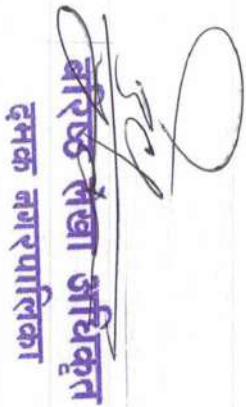 वरिष्ठ लेखा अधिकृत
दमक नगरपालिका